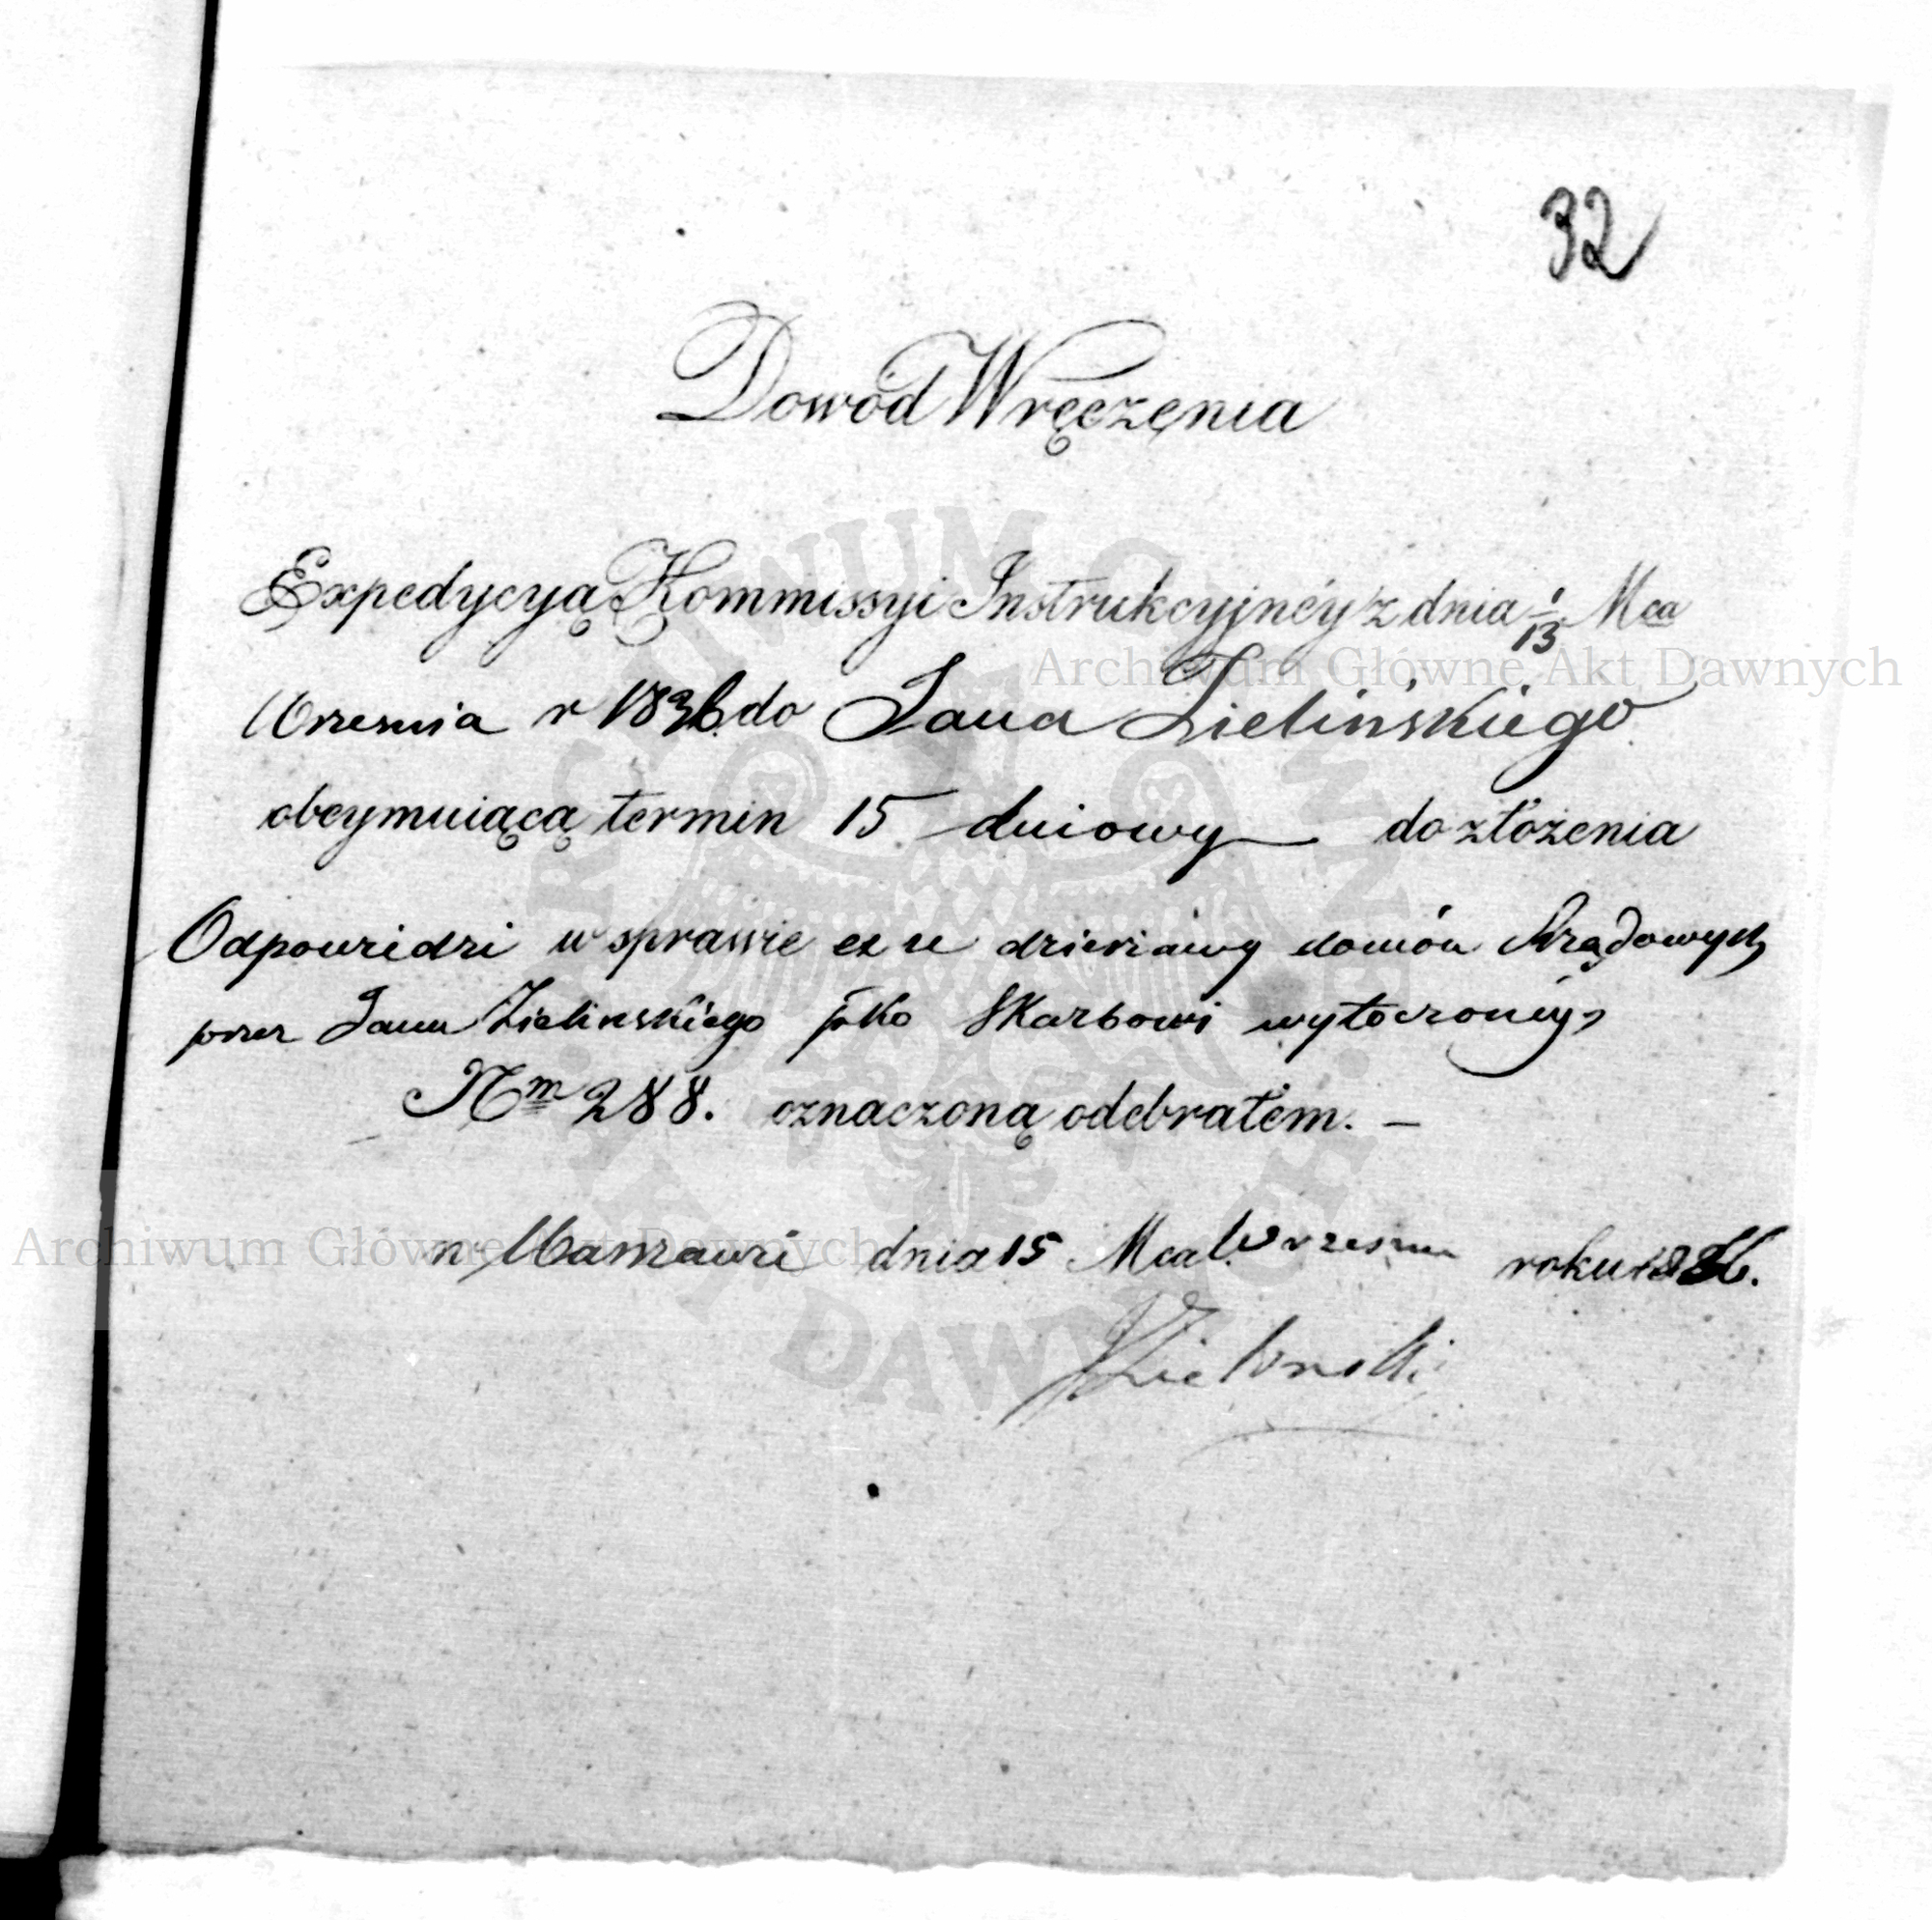 32
Dowód Wręczęnia
Expedycyą Kommissyi Instrukcyjnéy z dnia 1/13 Mca
Wrzesnia r 1836 do Jana Zielińskiego
obeymuiącą termin 15 dniowy do złożenia
Odpowiedzi w sprawie ex re dzierżawy domów Rządowych
przez Jana Zielinskiego pko Skarbowi wytoczonéy,
Nm 288. oznaczoną odebrałem. —
w Warszawie dnia 15 Mca Wrzesnia roku 1836.
JZielinski
Archiwum Główne Akt Dawnych
Archiwum Główne Akt Dawnych
ARCHIWUM GŁÓWNE AKT DAWNYCH